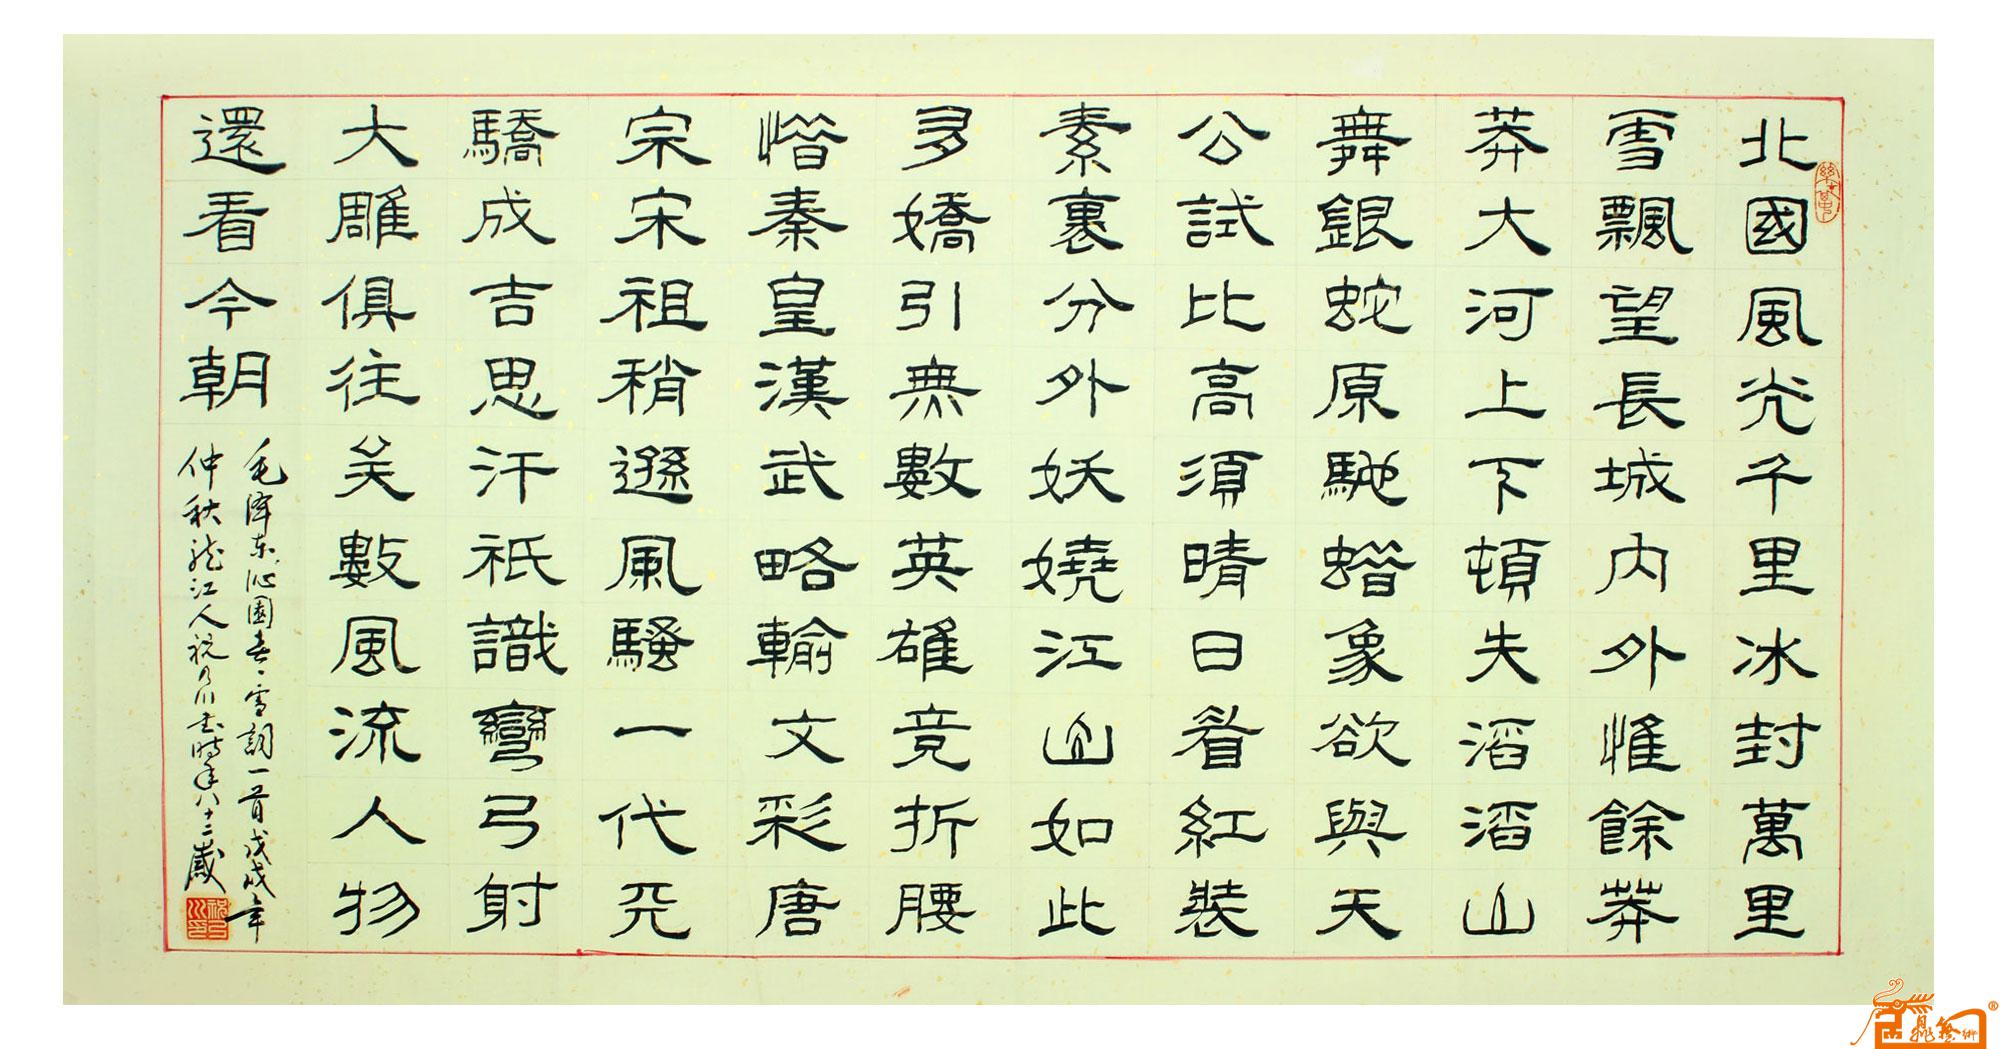 北國風光千里冰封萬里
雪飄望長城內外惟餘莽
莽大河上下頓失滔滔山
舞銀蛇原馳蜡象欲與天
公試比高須晴日看紅裝
素裹分外妖嬈江山如此
多嬌引無數英雄竞折腰
惜秦皇漢武略輸文彩唐
宗宋祖稍遜風騷一代天
驕成吉思汗祇識彎弓射
大雕俱往矣數風流人物
還看今朝
毛泽东沁園春·雪詞一首戊戌年
仲秋龙江人祝乃川书時年八十二歲
祝乃川印